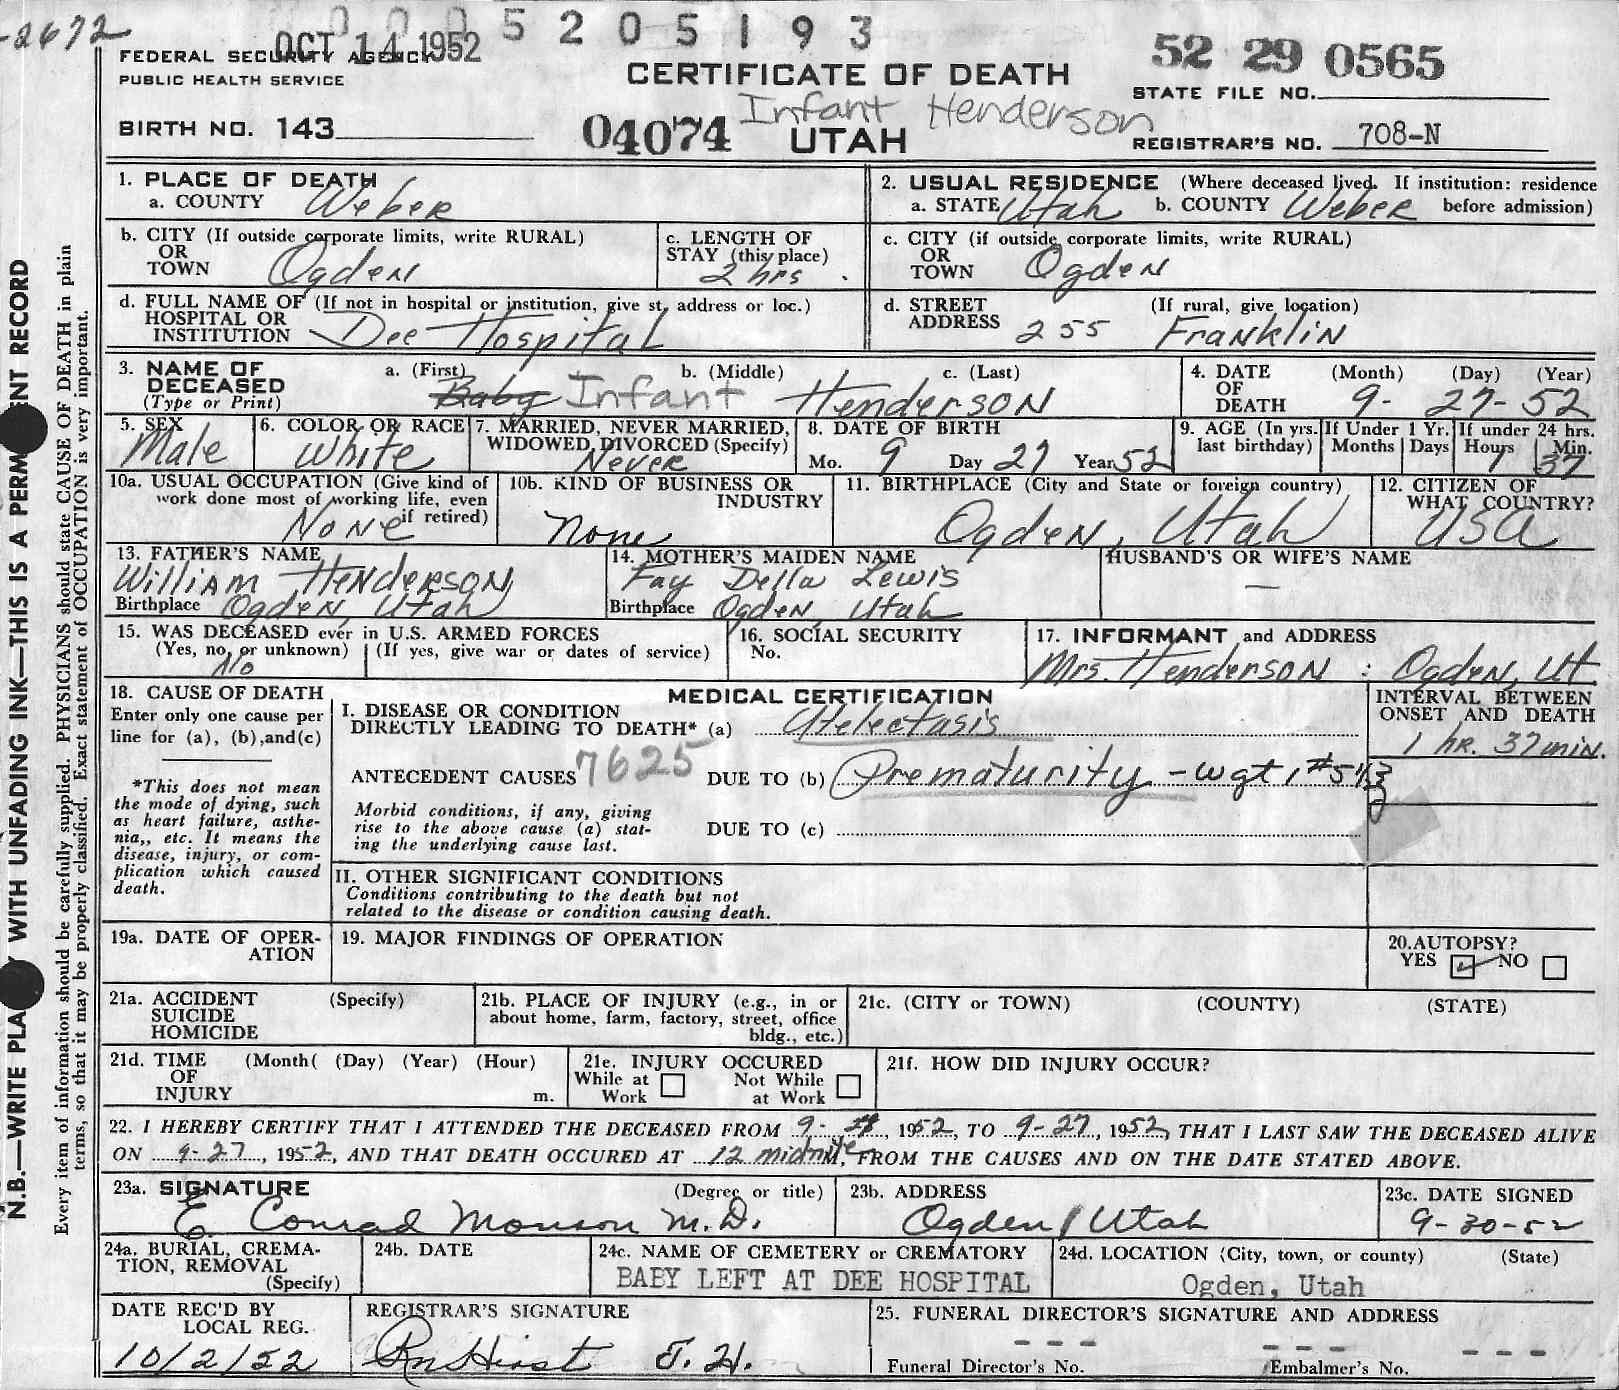 -2672
0005205193
OCT 14 1952
FEDERAL SECURITY AGENCY
PUBLIC HEALTH SERVICE
CERTIFICATE OF DEATH
52 29 0565
STATE FILE NO.
Infant Henderson
BIRTH NO. 143
04074 UTAH
REGISTRAR'S NO. 708-N
1. PLACE OF DEATH
a. COUNTY Weber
2. USUAL RESIDENCE (Where deceased lived. If institution: residence
a. STATE Utah b. COUNTY Weber before admission)
b. CITY (If outside corporate limits, write RURAL)
OR
TOWN Ogden
c. LENGTH OF
STAY (this place)
2 hrs.
c. CITY (if outside corporate limits, write RURAL)
OR
TOWN Ogden
d. FULL NAME OF (If not in hospital or institution, give st. address or loc.)
HOSPITAL OR
INSTITUTION Dee Hospital
d. STREET (If rural, give location)
ADDRESS 255 Franklin
3. NAME OF
DECEASED
(Type or Print)
a. (First) b. (Middle) c. (Last)
Baby Infant Henderson
4. DATE
OF
DEATH
(Month) (Day) (Year)
9- 27- 52
5. SEX
Male
6. COLOR OR RACE
White
7. MARRIED, NEVER MARRIED,
WIDOWED, DIVORCED (Specify)
Never
8. DATE OF BIRTH
Mo. 9 Day 27 Year 52
9. AGE (In yrs.
last birthday)
If Under 1 Yr.
Months Days
If under 24 hrs.
Hours Min.
1 37
10a. USUAL OCCUPATION (Give kind of
work done most of working life, even
if retired)
None
10b. KIND OF BUSINESS OR
INDUSTRY
None
11. BIRTHPLACE (City and State or foreign country)
Ogden, Utah
12. CITIZEN OF
WHAT COUNTRY?
USA
13. FATHER'S NAME
William Henderson
Birthplace Ogden, Utah
14. MOTHER'S MAIDEN NAME
Fay Della Lewis
Birthplace Ogden, Utah
HUSBAND'S OR WIFE'S NAME
—
15. WAS DECEASED ever in U.S. ARMED FORCES
(Yes, no, or unknown) (If yes, give war or dates of service)
No
16. SOCIAL SECURITY
No.
17. INFORMANT and ADDRESS
Mrs. Henderson : Ogden, Ut.
18. CAUSE OF DEATH
Enter only one cause per
line for (a), (b), and(c)
*This does not mean
the mode of dying, such
as heart failure, asthe-
nia,, etc. It means the
disease, injury, or com-
plication which caused
death.
MEDICAL CERTIFICATION
I. DISEASE OR CONDITION
DIRECTLY LEADING TO DEATH* (a) Atelectasis
INTERVAL BETWEEN
ONSET AND DEATH
1 hr. 37 min.
ANTECEDENT CAUSES 7625 DUE TO (b) Prematurity - wgt,
Morbid conditions, if any, giving
rise to the above cause (a) stat-
ing the underlying cause last.
DUE TO (c)
II. OTHER SIGNIFICANT CONDITIONS
Conditions contributing to the death but not
related to the disease or condition causing death.
19a. DATE OF OPER-
ATION
19. MAJOR FINDINGS OF OPERATION
20.AUTOPSY?
YES ✓ NO
21a. ACCIDENT (Specify)
SUICIDE
HOMICIDE
21b. PLACE OF INJURY (e.g., in or
about home, farm, factory, street, office
bldg., etc.)
21c. (CITY or TOWN) (COUNTY) (STATE)
21d. TIME (Month( (Day) (Year) (Hour)
OF
INJURY m.
21e. INJURY OCCURED
While at Not While
Work at Work
21f. HOW DID INJURY OCCUR?
22. I HEREBY CERTIFY THAT I ATTENDED THE DECEASED FROM 9- , 1952, TO 9-27, 1952, THAT I LAST SAW THE DECEASED ALIVE
ON 9-27, 1952, AND THAT DEATH OCCURED AT 12 midnite M, FROM THE CAUSES AND ON THE DATE STATED ABOVE.
23a. SIGNATURE (Degree or title)
E. Conrad Monson M.D.
23b. ADDRESS
Ogden, Utah
23c. DATE SIGNED
9-30-52
24a. BURIAL, CREMA-
TION, REMOVAL
(Specify)
24b. DATE
24c. NAME OF CEMETERY or CREMATORY
BABY LEFT AT DEE HOSPITAL
24d. LOCATION (City, town, or county) (State)
Ogden, Utah
DATE REC'D BY
LOCAL REG.
10/2/52
REGISTRAR'S SIGNATURE
J. H.
25. FUNERAL DIRECTOR'S SIGNATURE AND ADDRESS
--- --- ---
Funeral Director's No. Embalmer's No.
N.B.—WRITE WITH UNFADING INK—THIS IS A RECORD
Every item of information should be carefully supplied. PHYSICIANS should state CAUSE OF DEATH in plain
terms, so that it may be properly classified. Exact statement of OCCUPATION is very important.